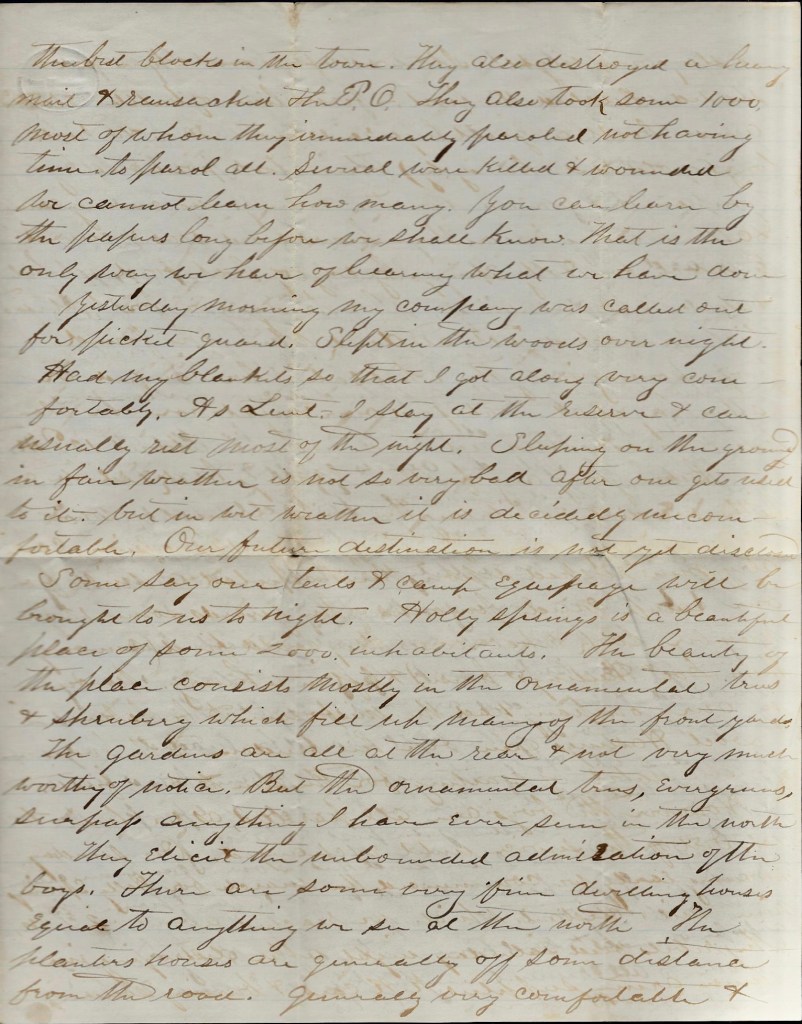 the best blocks in the town. They also destroyed a heavy
mail & ransacked the P.O. They also took some 1000,
most of whom they immediately paroled not having
time to parol all. Several were killed & wounded
We cannot learn how many. You can learn by
the papers long before we shall know. That is the
only way we have of hearing what we have done
Yesterday morning my company was called out
for picket guard. Slept in the woods over night.
Had my blankets so that I got along very com-
fortably. As Lieut. I stay at the reserve & can
usually rest most of the night. Sleeping on the ground
in fair weather is not so very bad after one gets used
to it. but in wet weather it is decidedly uncom-
fortable. Our future destination is not yet disclosed
Some say our tents & camp equipage will be
brought to us to night. Holly springs is a beautiful
place of some 2000. inhabitants. The beauty of
the place consists mostly in the ornamental trees
& shrubery which fill up many of the front yards.
The gardens are all at the rear & not very much
worthy of notice. But the ornamental trees, Evergreens,
surpass anything I have Ever seen in the north
They Elicit the unbounded admiration of the
boys. There are some very fine dwelling houses
Equal to anything we see at the north. The
planters houses are generally off some distance
from the road. Generally very comfortable &